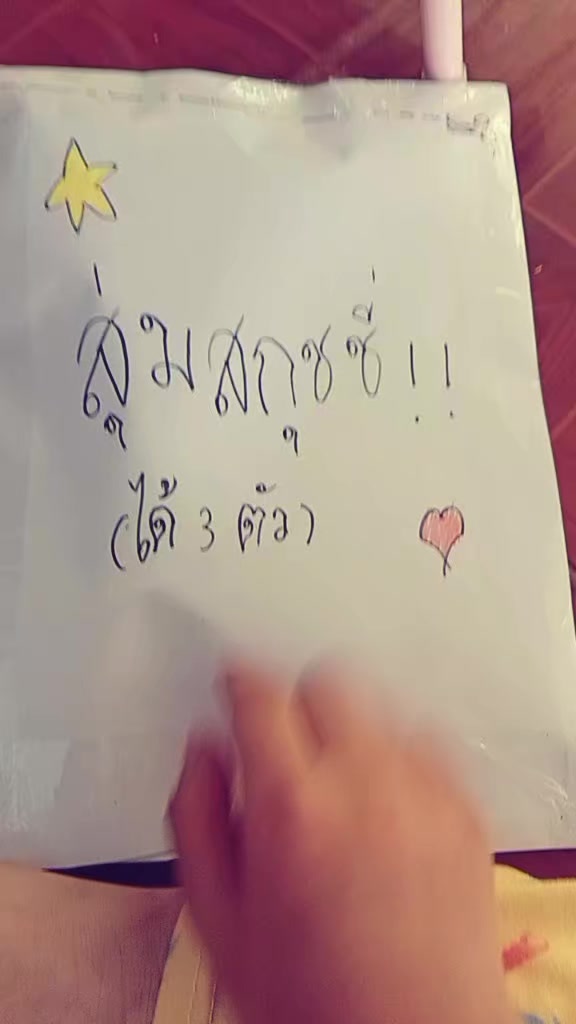 สุ่มสกุชชี่!!
(ได้ 3 ตัว)